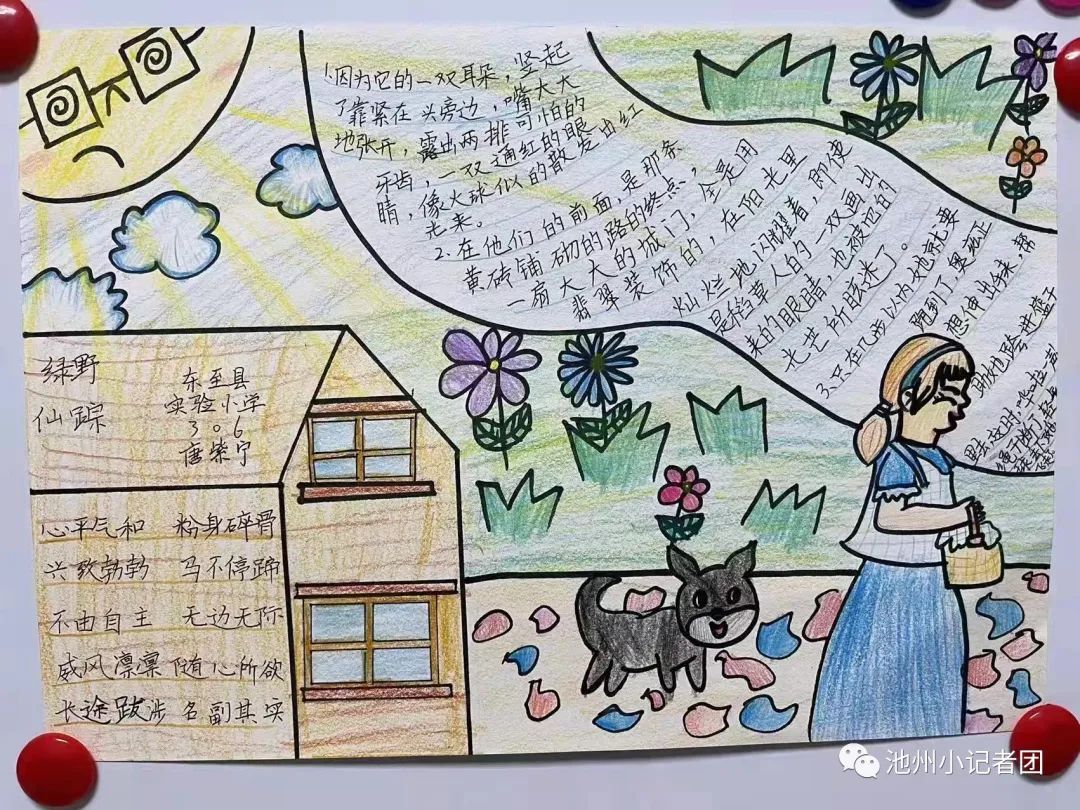 1.因为它的一双耳朵，竖起
了靠紧在头旁边，嘴大大
地张开，露出两排可怕的
牙齿，一双通红的眼
睛，像火球似的散发出红
光来。
2.在他们的前面，是那条
黄砖铺砌的路的终点，
一扇大大的城门，全是用
翡翠装饰的，在阳光里
灿烂地闪耀着，即使
是稻草人的一双画出
来的眼睛，也被它的
光芒所眩迷了。
3.只在几步以内她就要
跑到了奥兹正
想伸出手来，帮
助她跨进篮子
里去
绿野
仙踪
东至县
实验小学
3。6
唐紫宁
心平气和 粉身碎骨
兴致勃勃 马不停蹄
不由自主 无边无际
威风凛凛 随心所欲
长途跋涉 名副其实
池州小记者团